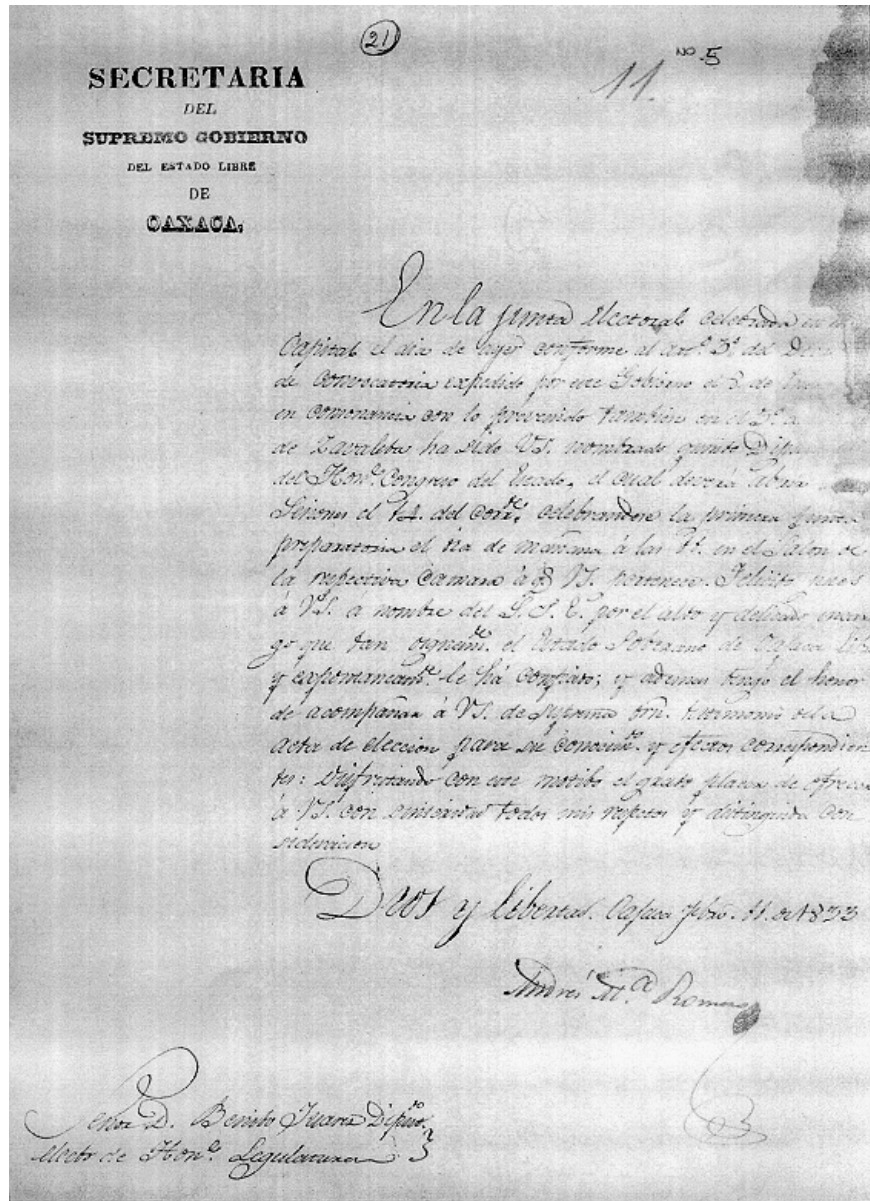 21
No. 5
11.
SECRETARIA
DEL
SUPREMO GOBIERNO
DEL ESTADO LIBRE
DE
OAXACA.
En la junta Electoral celebrada en
Capital el dia de ayer conforme al art.º 3.º del
de convocatoria expedido por este Gobierno el 2 de
en consonancia con lo prevenido tambien en el 5.º
de Zavaleta ha sido VS. nombrado quinto
del Hon.e Congreso del Estado, el cual deverá abrir
Seciones el 12. del corr.te celebrandose la primera junta
preparatoria el dia de mañana á las en el Salon de
la respectiva Camara á q VS. pertenece. Felicito pues
á VS. a nombre del S. S. E. por el alto y delicado encar
go que tan dignam.te el Estado Soberano de Oajaca
y espontaneam.te le há confiado; y ademas tengo el honor
de acompañar á VS. de suprema orn. testimonio del
acta de eleccion para su conocim.to y efectos correspondien
tes: disfrutando con este motibo el grato placer de ofrecer
á VS. con sinceridad todos mis respetos y distinguida con
sideracion
Dios y libertad. Oajaca febr.o 11. de 1833
Andrés M.a Romero
Señor D. Benito Juarez Diput.do
electo de Hon.e Legislatura